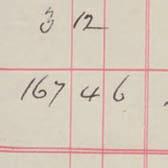 3 12
167 4 6